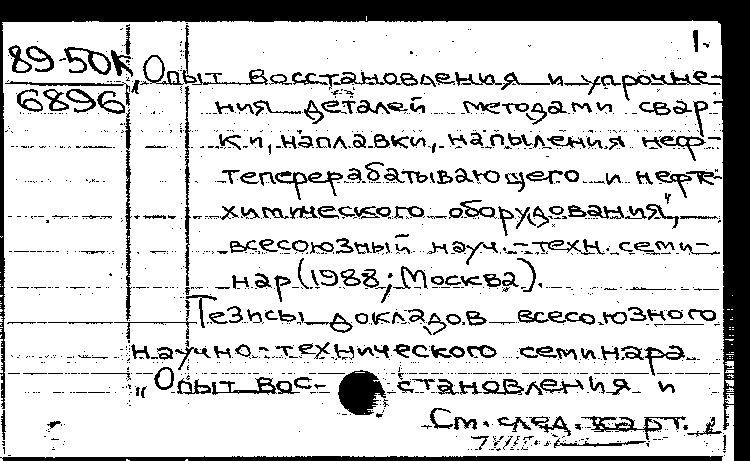 1.
89-50К
6896
„Опыт восстановления и упрочне-
ния деталей методами свар-
ки, наплавки, напыления неф-
теперерабатывающего и нефте-
химического оборудования",
всесоюзный науч.-техн. семи-
нар (1988; Москва).
Тезисы докладов всесоюзного
научно-технического семинара
„Опыт вос- становления и
См. след. карт.